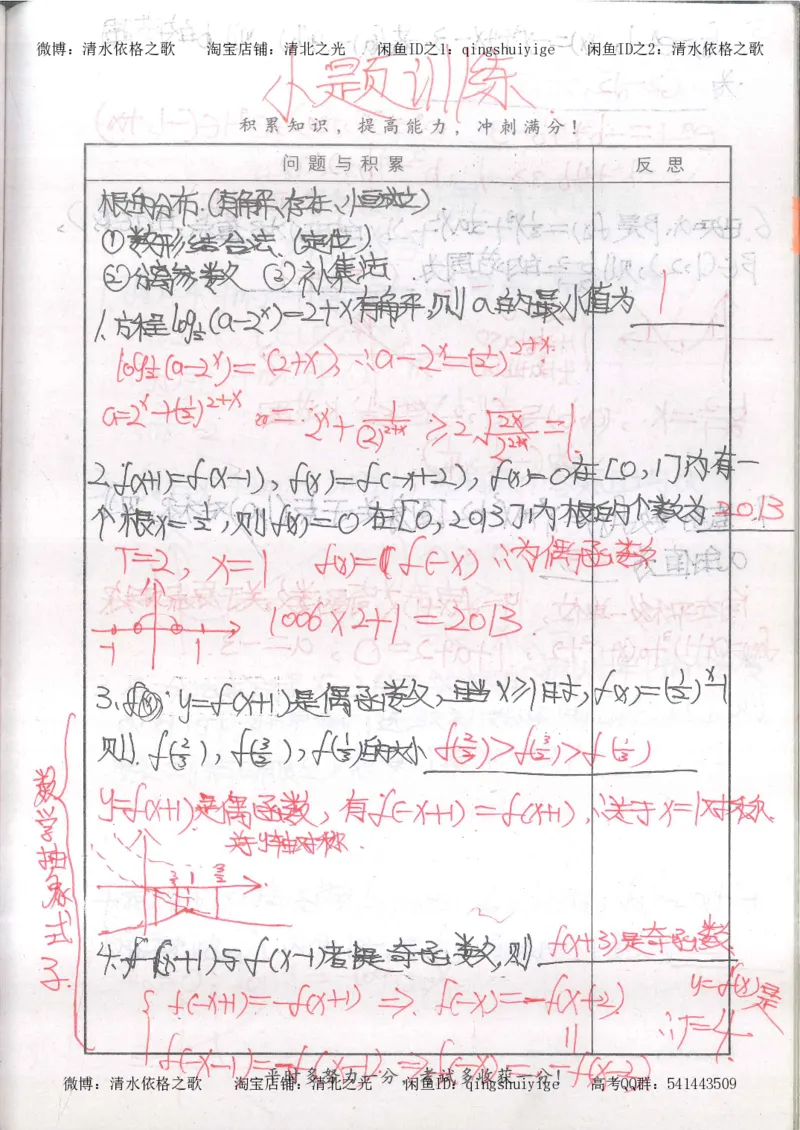 微博：清水依格之歌 淘宝店铺：清北之光 闲鱼ID之1：qingshuiyige 闲鱼ID之2：清水依格之歌
小题训练
积累知识，提高能力，冲刺满分！
问题与积累 反思
根的分布.(有解、存在、恒成立).
①数形结合法.(定位).
②分离参数 ③补集法.
1.方程log½(a-2ˣ)=2+x有解,则a的最小值为 1
log½(a-2ˣ)=(2+x), ∴a-2ˣ=(½)²⁺ˣ
a=2ˣ+(½)²⁺ˣ = 2ˣ+1/(2)²⁺ˣ ≥2√(2ˣ/2²⁺ˣ)=1
2.f(x+1)=f(x-1), f(x)=f(-x+2), f(x)=0在[0,1]内有一
个根x=½,则f(x)=0在[0,2013]内根的个数为 2013
T=2, x=1 f(x)=f(-x) ∴为偶函数
-1 1 1006×2+1=2013.
3. y=f(x+1)是偶函数,且当x≥1时,f(x)=(½)ˣ-1
则.f(2/3),f(3/2),f(1/3)的大小 f(2/3)>f(3/2)>f(1/3)
y=f(x+1)是偶函数,有f(-x+1)=f(x+1),∴关于x=1对称.
关于轴对称.
1 3/2
数学抽象式子.
4.f(x+1)与f(x-1)都是奇函数,则 f(x+3)是奇函数
f(-x+1)=-f(x+1) => f(-x)=-f(x+2) y=f(x)是
∴T=4
f(-x-1)=-f(x-1) => f(-x)=-f(x-2)
平时多努力一分，考试多收获一分！
微博：清水依格之歌 淘宝店铺：清北之光 闲鱼ID：qingshuiyige 高考QQ群：541443509